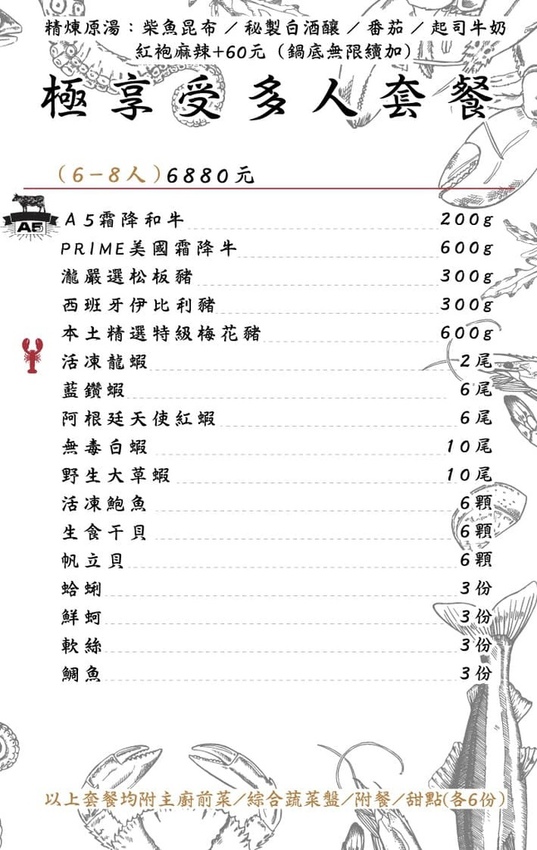 精煉原湯：柴魚昆布／秘製白酒釀／番茄／起司牛奶
紅袍麻辣+60元（鍋底無限續加）
極享受多人套餐
（6-8人）6880元
A5
A5霜降和牛 200g
PRIME美國霜降牛 600g
瀧嚴選松板豬 300g
西班牙伊比利豬 300g
本土精選特級梅花豬 600g
活凍龍蝦 2尾
藍鑽蝦 6尾
阿根廷天使紅蝦 6尾
無毒白蝦 10尾
野生大草蝦 10尾
活凍鮑魚 6顆
生食干貝 6顆
帆立貝 6顆
蛤蜊 3份
鮮蚵 3份
軟絲 3份
鯛魚 3份
以上套餐均附主廚前菜／綜合蔬菜盤／附餐／甜點(各6份)